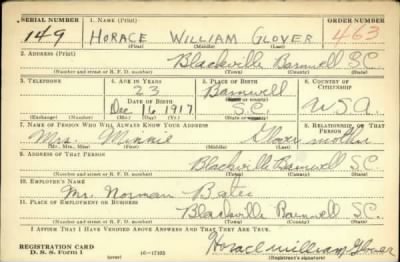 SERIAL NUMBER 1. NAME (Print) ORDER NUMBER
149 HORACE WILLIAM GLOVER 463
(First) (Middle) (Last)
2. ADDRESS (Print)
Blackville Barnwell S.C.
(Number and street or R. F. D. number) (Town) (County) (State)
3. TELEPHONE 4. AGE IN YEARS 5. PLACE OF BIRTH 6. COUNTRY OF CITIZENSHIP
23 Barnwell
DATE OF BIRTH (Town or county)
Dec. 16 1917 S.C. USA.
(Exchange) (Number) (Mo.) (Day) (Yr.) (State or country)
7. NAME OF PERSON WHO WILL ALWAYS KNOW YOUR ADDRESS 8. RELATIONSHIP OF THAT PERSON
Mrs. Minnie Glover mother
(Mr., Mrs., Miss) (First) (Middle) (Last)
9. ADDRESS OF THAT PERSON
Blackville Barnwell S.C.
(Number and street or R. F. D. number) (Town) (County) (State)
10. EMPLOYER'S NAME
Mr. Norman
11. PLACE OF EMPLOYMENT OR BUSINESS
Blackville Barnwell S.C.
(Number and street or R. F. D. number) (Town) (County) (State)
I AFFIRM THAT I HAVE VERIFIED ABOVE ANSWERS AND THAT THEY ARE TRUE.
REGISTRATION CARD
D. S. S. Form 1 (over) Horace william Glover
(Registrant's signature)